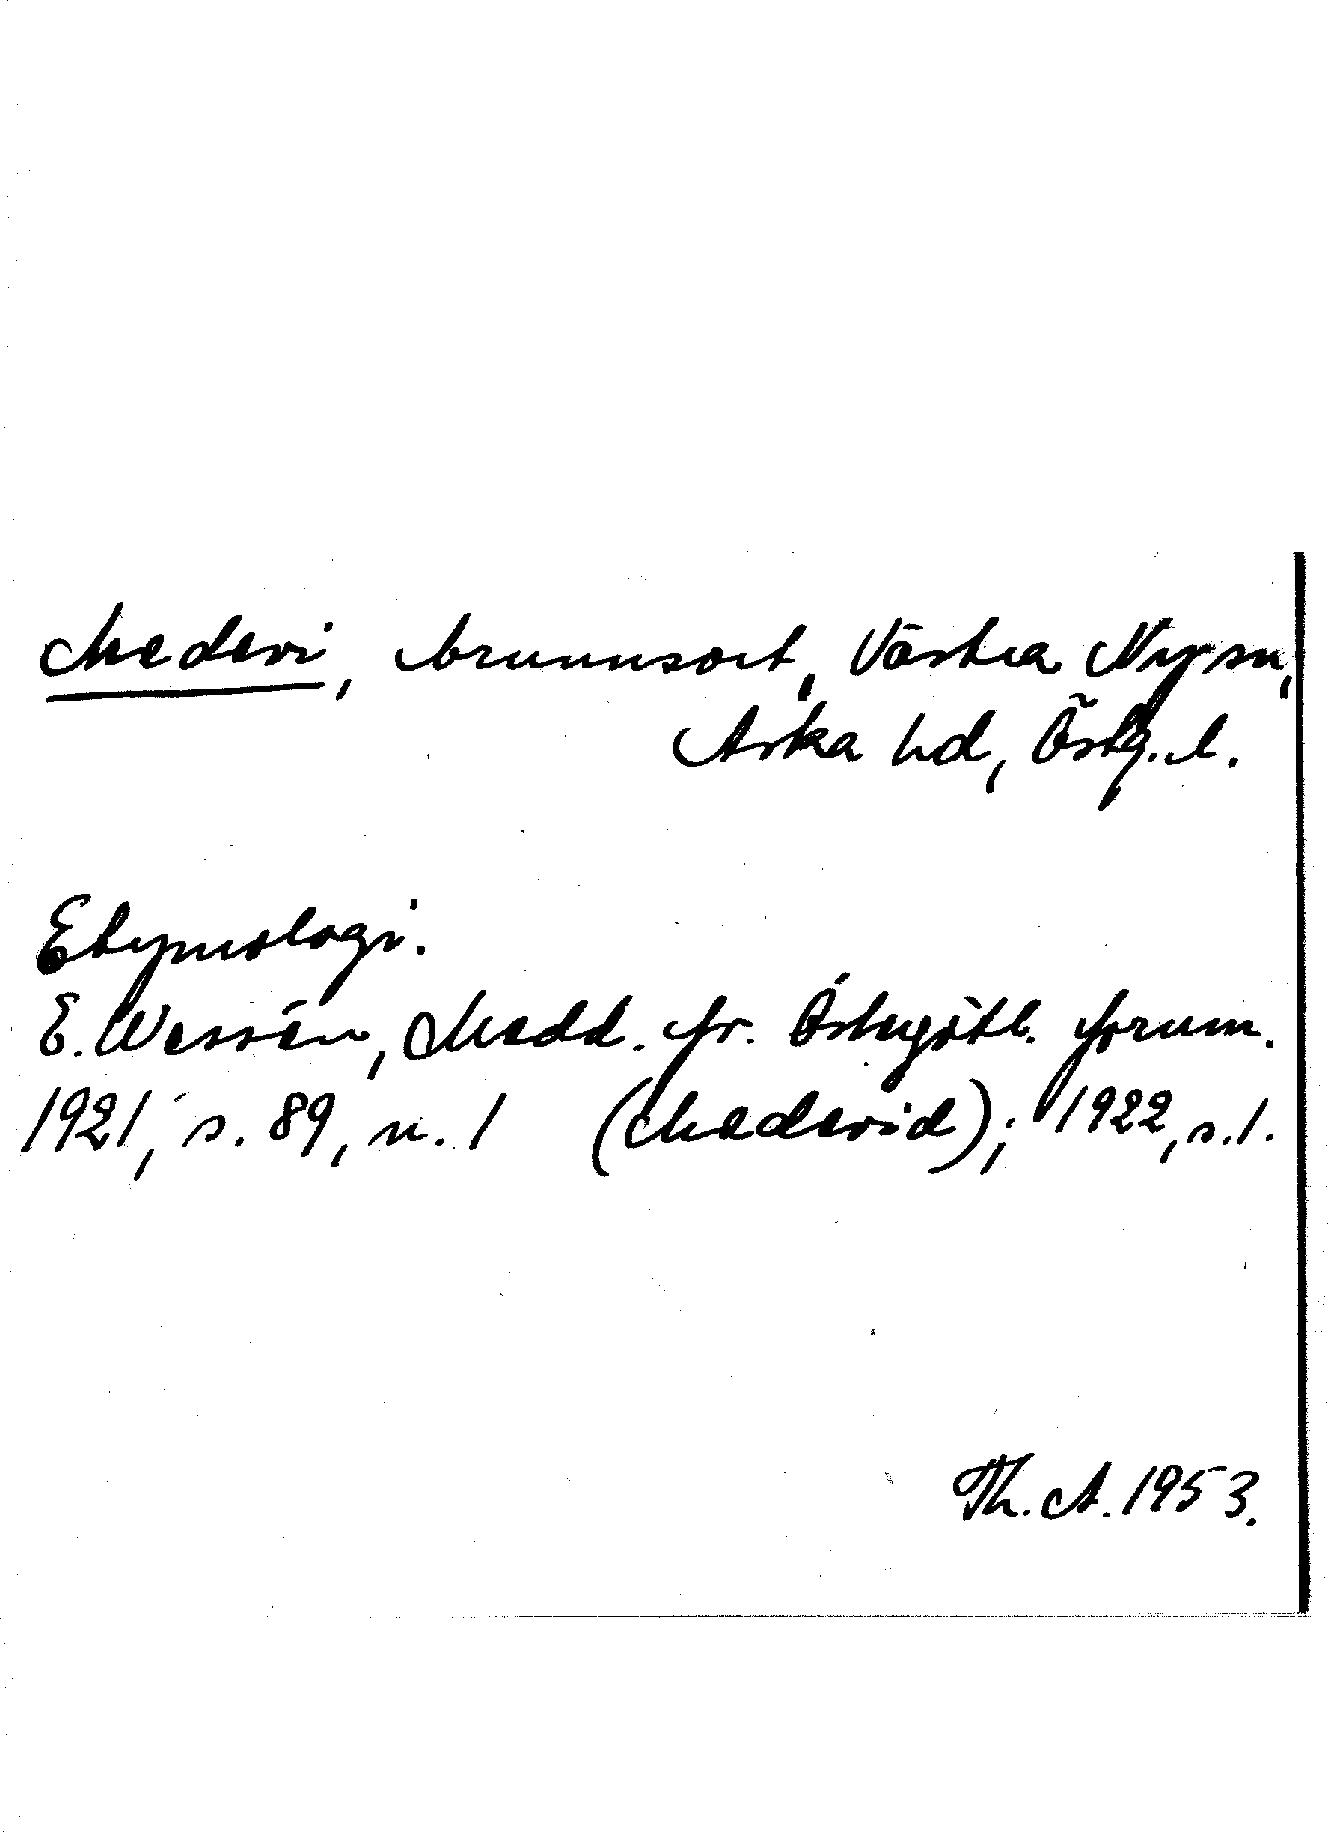 Medevi, brunnsort, Västra Ny sn,
Aska hd, Östg. l.
Etymologi.
E. Wessén, Medd. fr. Östergötl. fornm.
1921, s. 89, n. 1 (Medevid); 1922, s. 1.
Th. A. 1953.